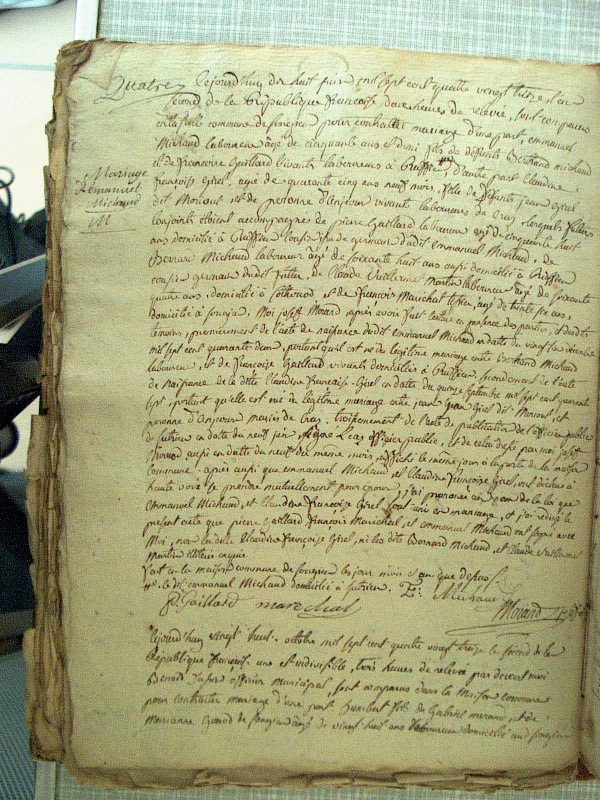 Quatre
Lejourdhuy dix huit juin mil sept cent quatre vingt treize, l'an
second de la République francoise deux heures de relevé, sont comparus
en la salle commune de pour contracter mariage d'une part, emmanuel
Michaud laboureur agé de cinquante ans et demi fils de deffunts Bertrand michaud
et de francoise Gaillard vivants laboureurs à Ruffieu d'autre part Claudine
françoise Girel, agée de quarante cinq ans neuf mois, fille de deffunts jean Girel
dit Moriout et de peronne d'Anjour vivants laboureurs de lesquels futurs
conjoints etoient accompagnés de pierre Gaillard laboureur agé de cinquante huit
ans domicilié à Ruffieu cousin de germain dudit emmanuel Michaud, de
Bernard Michaud laboureur agé de soixante huit ans aussi domicilié à Ruffieu
cousin germain dudit futur, de Claude Vuillermet Martin laboureur agé de soixante
quatre ans, domicilié à Sothonod, et de françois Marechal agé de trente six ans,
domicilié à Songieu. Moi joseph Morand après avoir fait lecture en présence des parties, et desdits
temoins, premierement de l'acte de naissance dudit emmanuel Michaud en datte du vingt six
mil sept cent quarante deux, portant qu'il est né de légitime mariage entre Bertrand Michaud
laboureur, et de françoise Gaillard vivants domiciliés à Ruffieu, secondement de l'acte
de naissance de la ditte Claudine françoise Girel en datte du quinze septembre mil sept cent quarante
sept, portant qu'elle est née de légitime mariage entre jean Girel dit Moriout, et
peronne d'Anjour mariés de troisiemement de l'acte de publication de l'officier public
de en datte du neuf juin officier public, et de celui dressé par moi joseph
Morand aussi en datte du neuf du même mois, affiché le même jour à la porte de la maison
commune. après aussi que emmanuel Michaud, et Claudine françoise Girel, ont déclaré à
haute voix se prendre mutuellement pour epoux j'ai prononcé au nom de la loi que
emmanuel Michaud, et Claudine françoise Girel, sont unis en mariage, et j'ai rédigé le
present acte que pierre Gaillard françois Marechal et emmanuel Michaud ont signé avec
Moi, non la ditte Claudine françoise Girel, ni les dits Bernard Michaud et Claude Vuillermet
Martin illiterés enquis
fait en la maison commune de songieu les jour mois et an que dessus
le dit emmanuel Michaud domicilié à
P. Gaillard marechal E. Michaud
Morand
Mariage
d'Emanuel
Michaud
M
Lejourd'huy vingt huit octobre mil sept cent quatre vingt treize le second de la
République francoise une et indivisible, trois heures de relevé par devant moi
Benoit officier municipal, sont comparus dans la Maison commune
pour contracter mariage d'une part humbert fils de Gabriel et de
Marianne de songieu agé de vingt huit ans laboureur domicilié